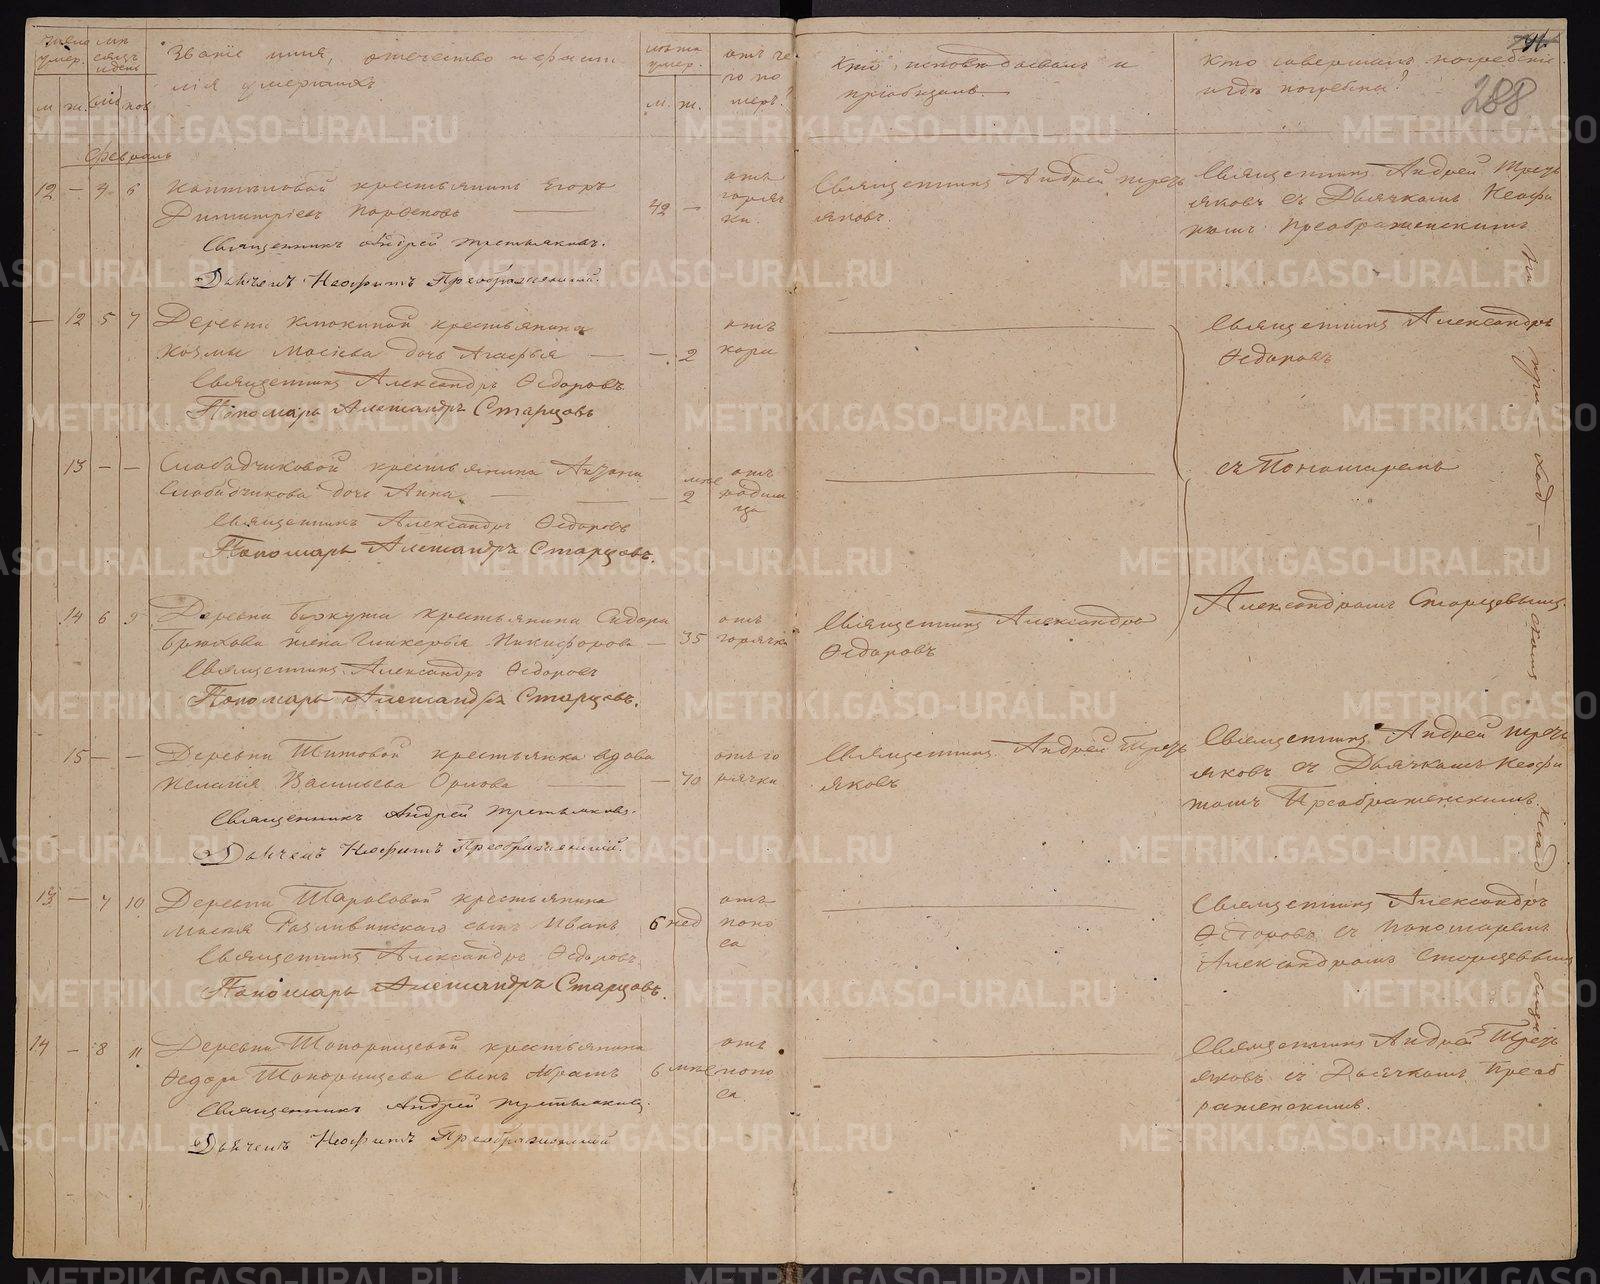 Число умер.
м. ж.
Месяцъ и день
Званіе имя, отечество и фами
лія умершихъ
Лѣта умер.
м. ж.
отъ че
го по
меръ?
Кто исповѣдовалъ и
пріобщалъ.
Кто совершалъ погребеніе
и гдѣ погребены?
288
Февраль
12 — 4 6
крестьянинъ Егоръ
Димитріевъ Парфеновъ
42 —
отъ
горяч
ки.
Священникъ Андрей Треть
яковъ.
Священникъ Андрей Треть
яковъ съ Дьячкомъ Неофи
томъ Преображенскимъ
Священникъ Андрей Третьяковъ.
Дьячекъ Неофитъ Преображенскій.
— 12 5 7
Деревни Клюкиной крестьянина
Козмы Мосѣева дочь Агафья
— 2
отъ
кори
Священникъ Александръ
Ѳедоровъ
Священникъ Александръ Ѳедоровъ
Пономарь Александръ Старцовъ
13 — —
Слободчиковой крестьянина
Слободчикова дочь Анна
— мѣс 2
отъ
родим
ца
съ Пономаремъ
Священникъ Александръ Ѳедоровъ
Пономарь Александръ Старцовъ.
14 6 9
Деревни крестьянина Сидора
Брюхова жена Гликерья Никифорова
— 35
отъ
горячки
Священникъ Александръ
Ѳедоровъ
Александромъ Старцевымъ.
Священникъ Александръ Ѳедоровъ
Пономарь Александръ Старцовъ.
15 — —
Деревни Титовой крестьянка вдова
Пелагія Васильева Орлова
— 70
отъ го
рячки
Священникъ Андрей Треть
яковъ
Священникъ Андрей Треть
яковъ съ Дьячкомъ Неофи
томъ Преображенскимъ.
Священникъ Андрей Третьяковъ.
Дьячекъ Неофитъ Преображенскій.
13 — 7 10
Деревни крестьянина
сынъ Иванъ
6 нед
отъ
поно
са
Священникъ Александръ
Ѳедоровъ съ Пономаремъ
Александромъ Старцевымъ
Священникъ Александръ Ѳедоровъ.
Пономарь Александръ Старцовъ.
14 — 8 11
Деревни Топорищевой крестьянина
Ѳедора Топорищева сынъ
6 мѣс
отъ
поно
са.
Священникъ Андрей Треть
яковъ съ Дьячкомъ Преоб
раженскимъ.
Священникъ Андрей Третьяковъ.
Дьячекъ Неофитъ Преображенскій
на при — ход — скомъ клад — бищѣ
METRIKI.GASO-URAL.RU